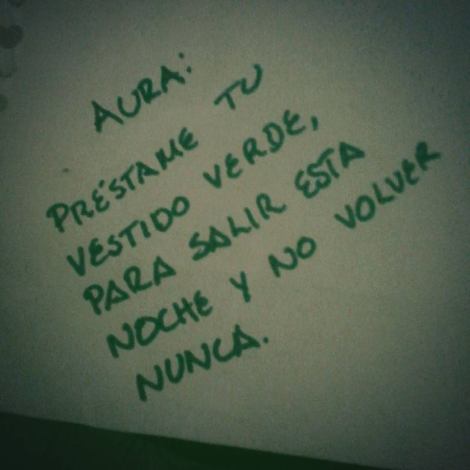 AURA:
PRÉSTAME TU
VESTIDO VERDE,
PARA SALIR ESTA
NOCHE Y NO VOLVER
NUNCA.